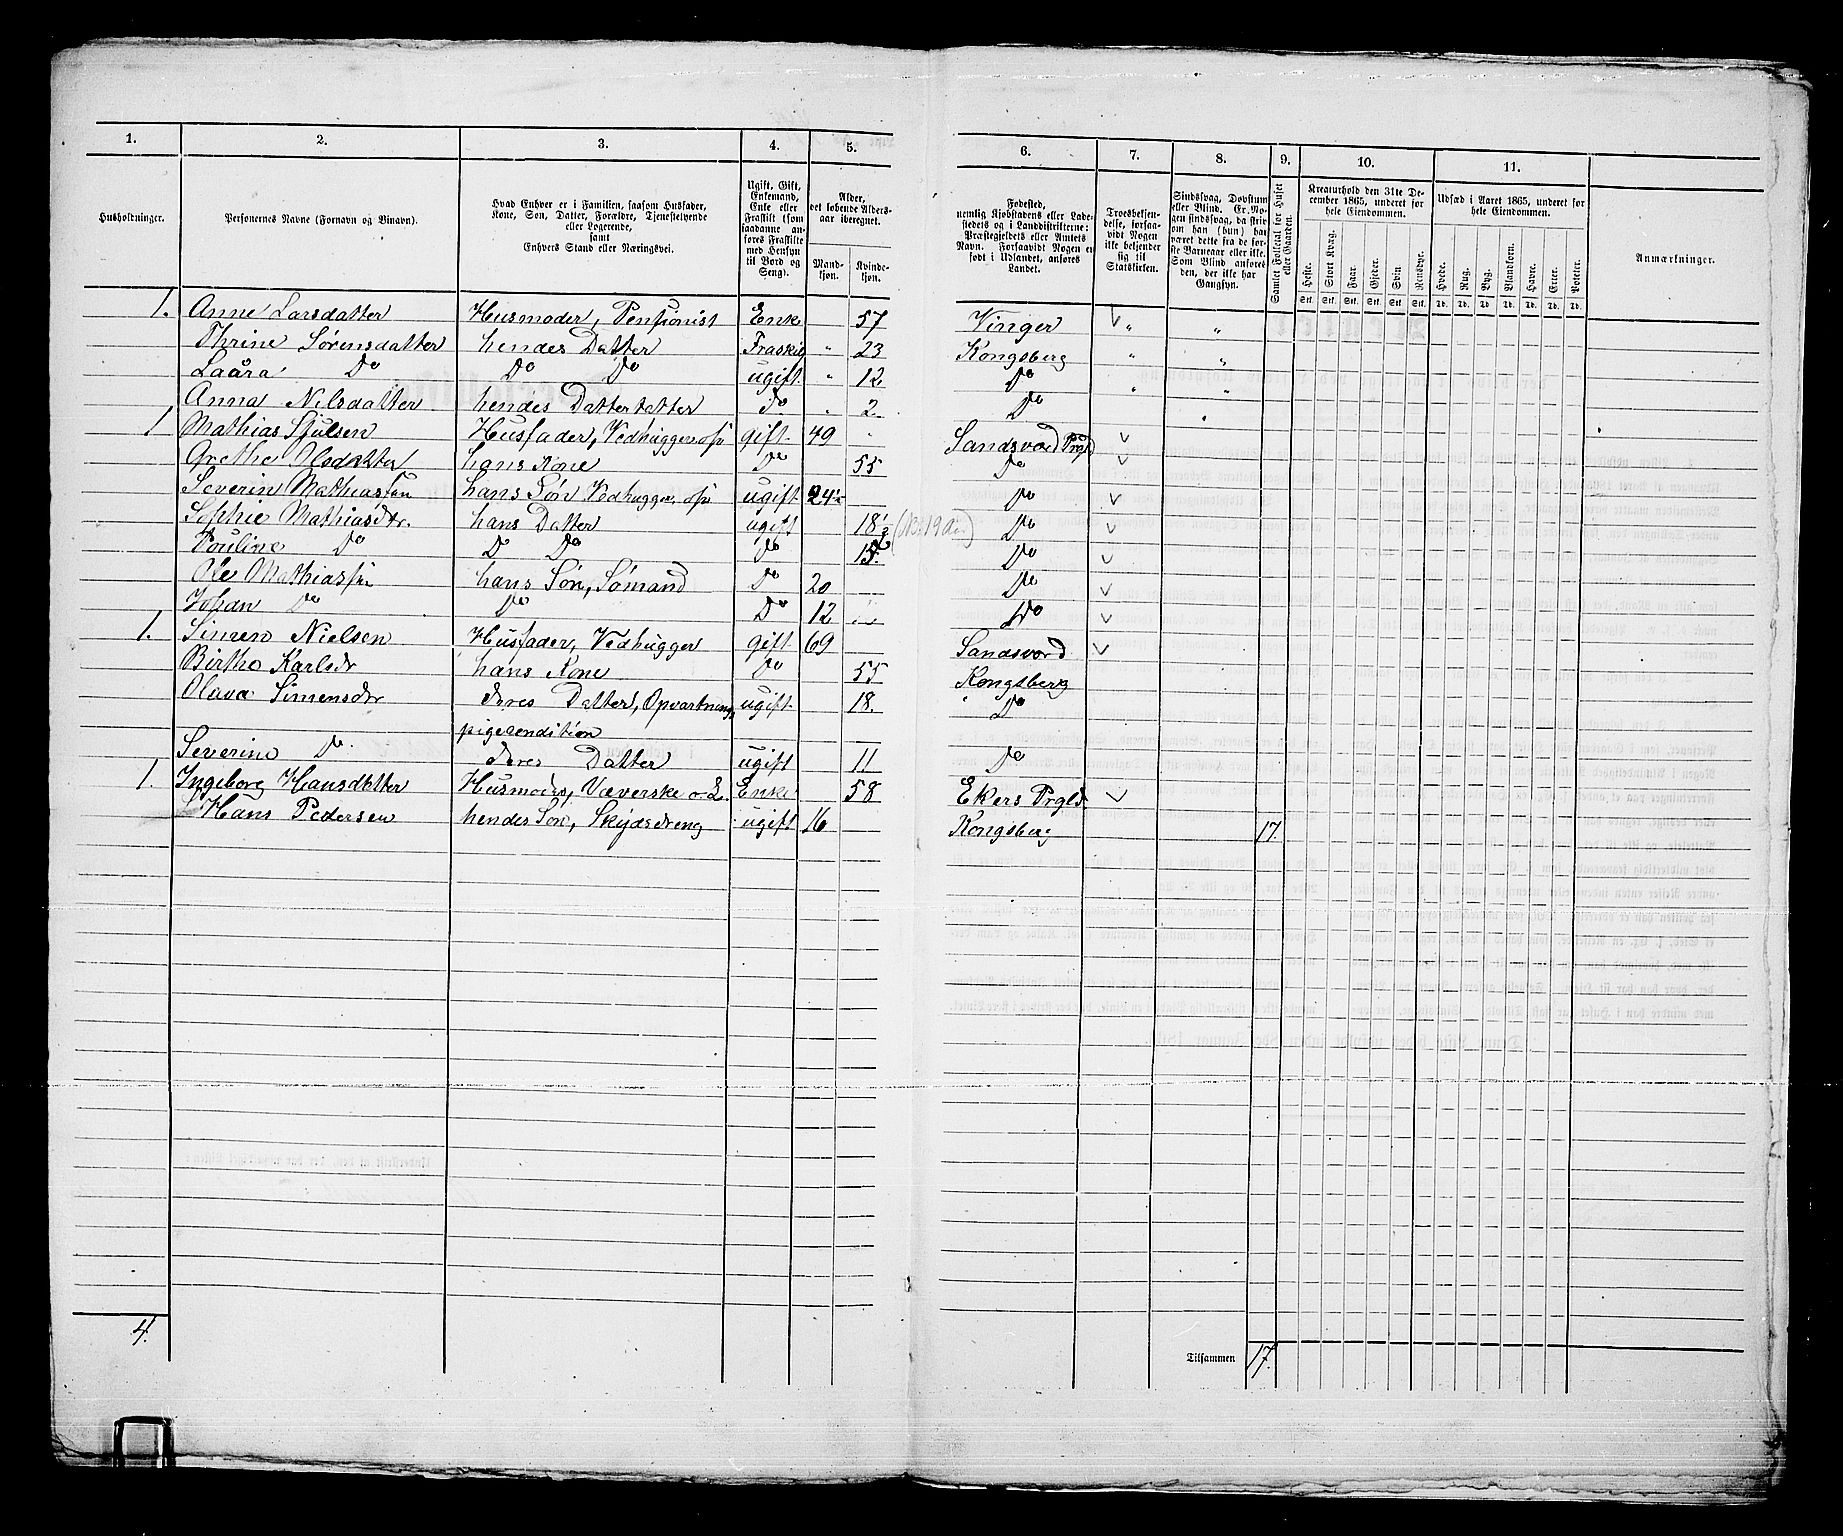 1. 2. 3. 4. 5. 6. 7. 8. 9. 10. 11.
Husholdninger.
Personernes Navne (Fornavn og Binavn).
Hvad Enhver er i Familien, saasom Husfader, Kone, Søn, Datter, Forældre, Tjenestetyende eller Logerende, samt Enhvers Stand eller Næringsvei.
Ugift, Gift, Enkemand, Enke eller Fraskilt (som saadanne anføres Fraskilte med Hensyn til Bord og Seng).
Alder, det løbende Aldersaar iberegnet.
Mandkjøn. Kvindekjøn.
Fødested, nemlig Kjøbstadens eller Ladestedets og i Landdistrikterne: Præstegjeldets eller Amtets Navn. Forsaavidt Nogen er født i Udlandet, anføres Landet.
Troesbekjendelse, forsaavidt Nogen ikke bekjender sig til Statskirken.
Sindssvag, Døvstum eller Blind. Er Nogen sindssvag, da skrives om han (hun) har været dette fra de første Barneaar eller ikke. Som Blind anføres den, der ikke har Gangsyn.
Samlet Folketal for Huset eller Gaarden.
Kreaturhold den 31te December 1865, underet for hele Eiendommen.
Heste. Stort Kvæg. Faar. Gjeder. Svin. Rensdyr.
Stk. Stk. Stk. Stk. Stk. Stk.
Udsæd i Aaret 1865, underet for hele Eiendommen.
Hvede. Rug. Byg. Blandkorn. Havre. Erter. Poteter.
Td. Td. Td. Td. Td. Td. Td.
Anmærkninger.
1. Anne Larsdatter Husmoder, Pensionist Enke 57 Vinger " "
Thrine Sørensdatter hendes Datter Fraskig " 23 Kongsberg " "
Laura Do Do Do ugift " 12 Do " "
Anna Nilsdatter hendes Datterdatter Do " 2 Do
1 Mathias Husfader, Vedhugger gift 49 Sandsvær Prgld
Grethe Olsdatter hans Kone Do 55 Do
Severin Mathiassen hans Søn Vedhugger ugift 24 Do
Sophie Mathiasdr. hans Datter ugift 18 Do
Pouline Do D Do Do 15 Do
Ole Mathiassen hans Søn, Sømand Do 20 Do
Johan Do Do Do 12 Do
1. Simen Nielsen Husfader, Vedhugger gift 69 Sandsvær
Birthe Karlsdr hans Kone Do 55 Kongsberg
Olava Simensdr deres Datter, Opvartnings ugift 18. Do
pigecondition
Severine Do deres Datter ugift 11 Do
1. Ingeborg Hansdatter Husmoder, Væverske o. L. Enke 58 Ekers Prgld
Hans Pedersen hendes Søn, Skydsdreng ugift 16 Kongsberg 17.
4.
Tilsammen 17.